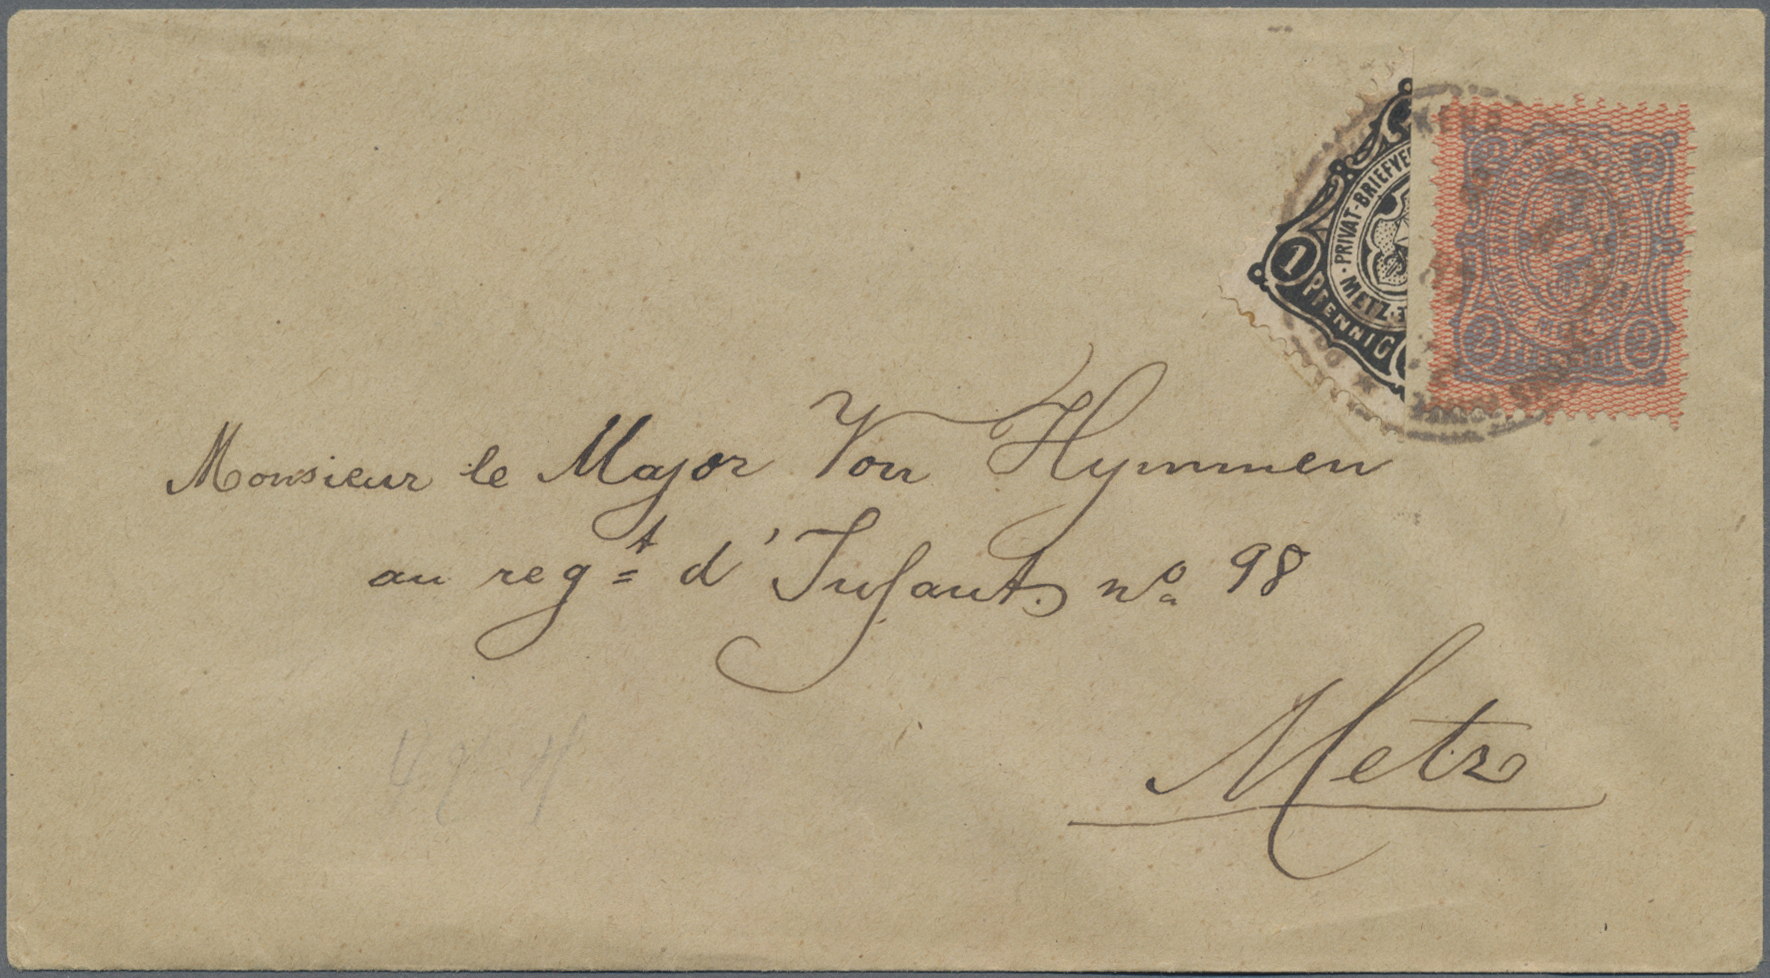 PRIVAT-BRIEFVE
METZ
1 PFENNIG
2 2
2 2
Monsieur le Major Von Hymmen
au regt d'Infant. no 98
Metz